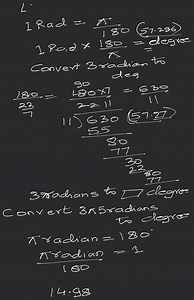 1 Rad = π/180 (57.286)
1 Rad × 180/π = degree
Convert 3 radian to
deg
90
180/(22/7) = 180×7/22 11 = 630/11
11)630(57.27
55
80
77
30
22
80
77
3 radians to □ degree
Convert 3π5 radians
to degree
π radian = 180°
π radian/180 = 1
14.98